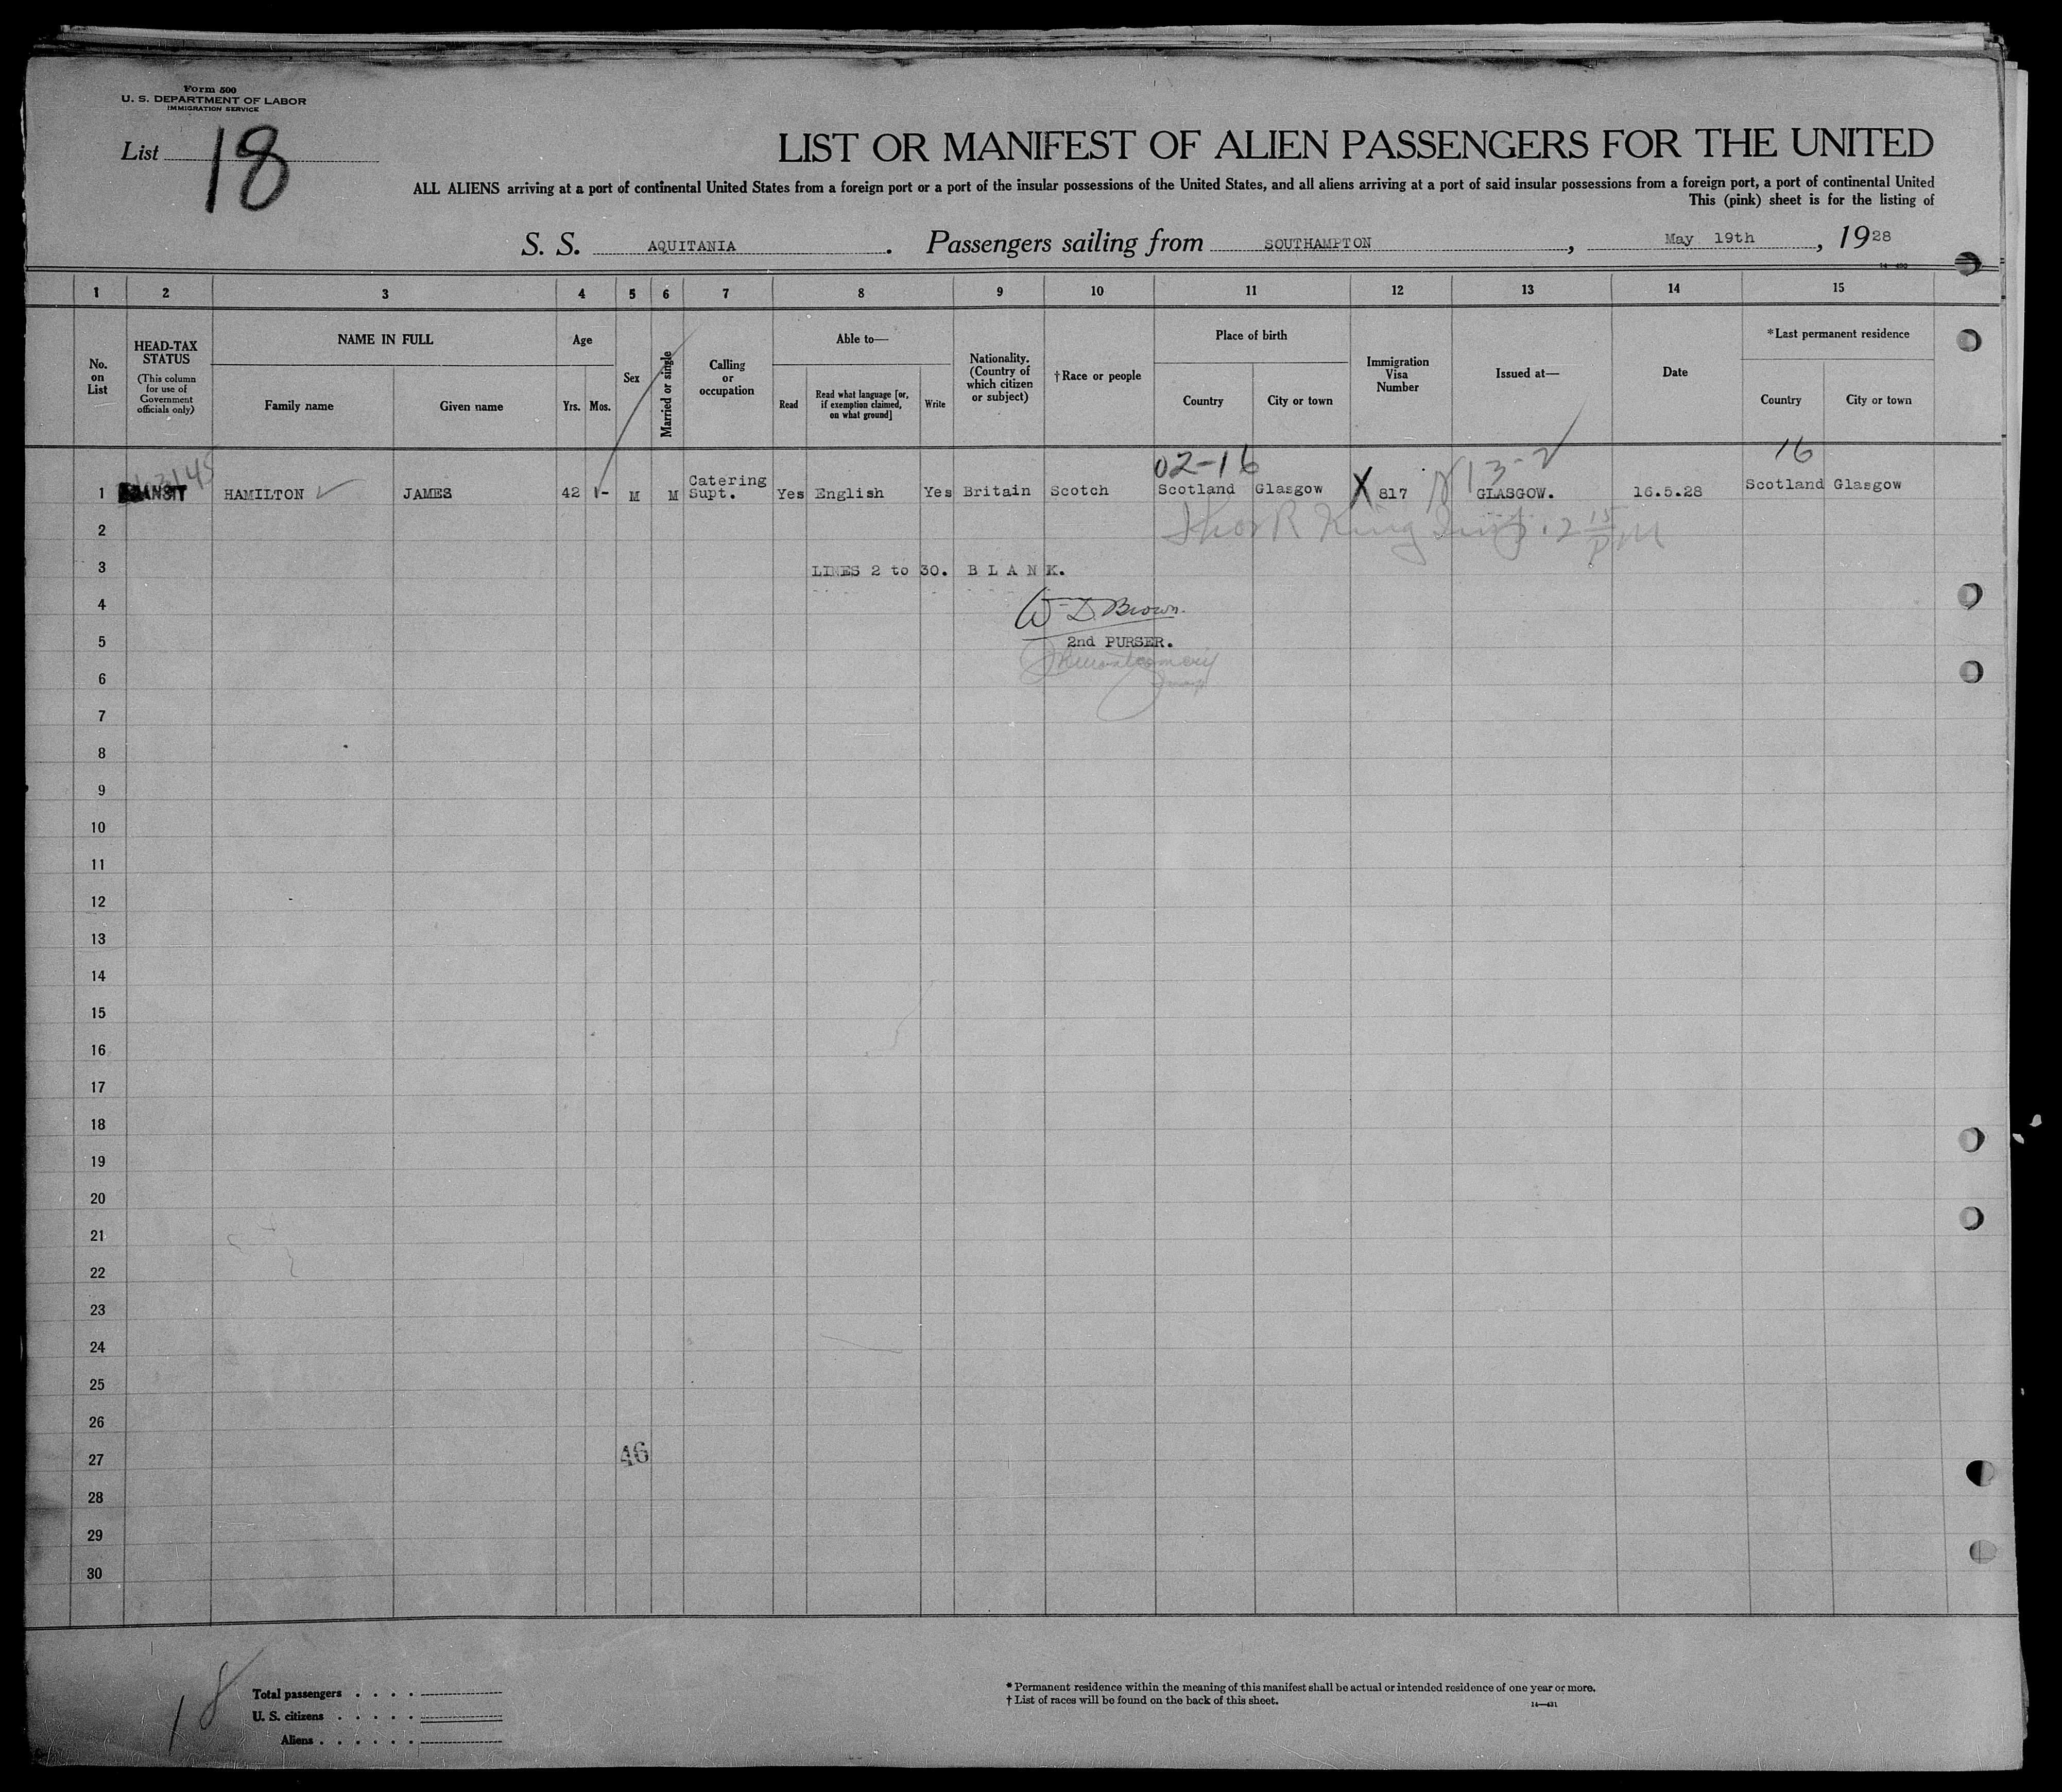 Form 500
U. S. DEPARTMENT OF LABOR
IMMIGRATION SERVICE
List 18
LIST OR MANIFEST OF ALIEN PASSENGERS FOR THE UNITED
ALL ALIENS arriving at a port of continental United States from a foreign port or a port of the insular possessions of the United States, and all aliens arriving at a port of said insular possessions from a foreign port, a port of continental United
This (pink) sheet is for the listing of
S. S. AQUITANIA. Passengers sailing from SOUTHAMPTON, May 19th, 1928
1 2 3 4 5 6 7 8 9 10 11 12 13 14 15
No. on List
HEAD-TAX STATUS (This column for use of Government officials only)
NAME IN FULL
Family name Given name
Age
Yrs. Mos.
Sex
Married or single
Calling or occupation
Able to—
Read
Read what language [or, if exemption claimed, on what ground]
Write
Nationality. (Country of which citizen or subject)
†Race or people
Place of birth
Country City or town
Immigration Visa Number
Issued at—
Date
*Last permanent residence
Country City or town
02-16 13-2 16
1 TRANSIT HAMILTON JAMES 42 1- M M Catering Supt. Yes English Yes Britain Scotch Scotland Glasgow X 817 GLASGOW. 16.5.28 Scotland Glasgow
2
3 LINES 2 to 30. B L A N K.
4 W D Brown.
5 2nd PURSER.
6
7
8
9
10
11
12
13
14
15
16
17
18
19
20
21
22
23
24
25
26
27 46
28
29
30
18
Total passengers . . . .
U. S. citizens . . . . .
Aliens . . . . . .
* Permanent residence within the meaning of this manifest shall be actual or intended residence of one year or more.
† List of races will be found on the back of this sheet.
14—431